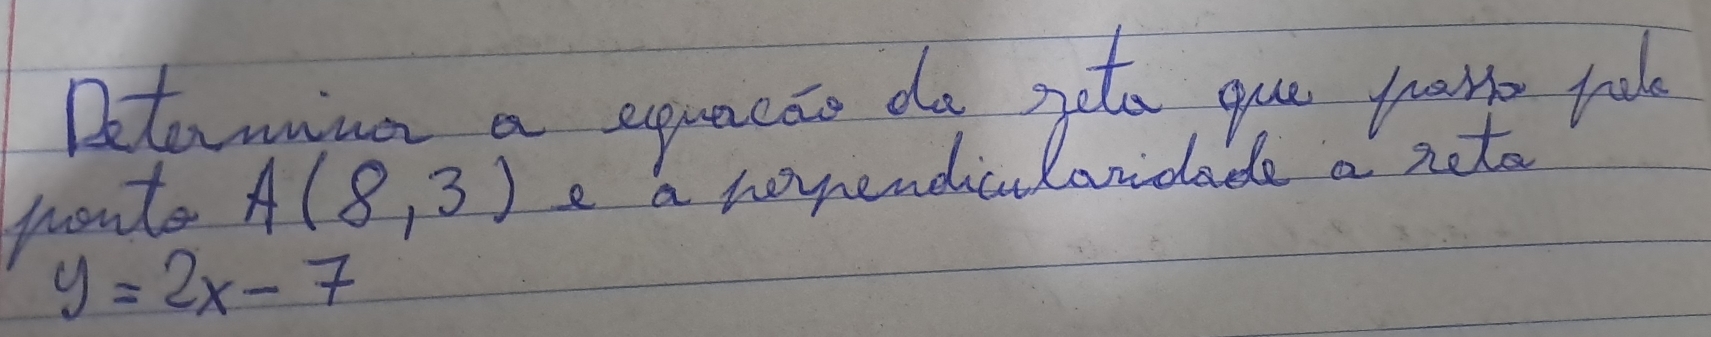 Determinar a equacão da reta que passa pelo
ponto A(8,3) e a perpendicularidade a reta
y=2x-7